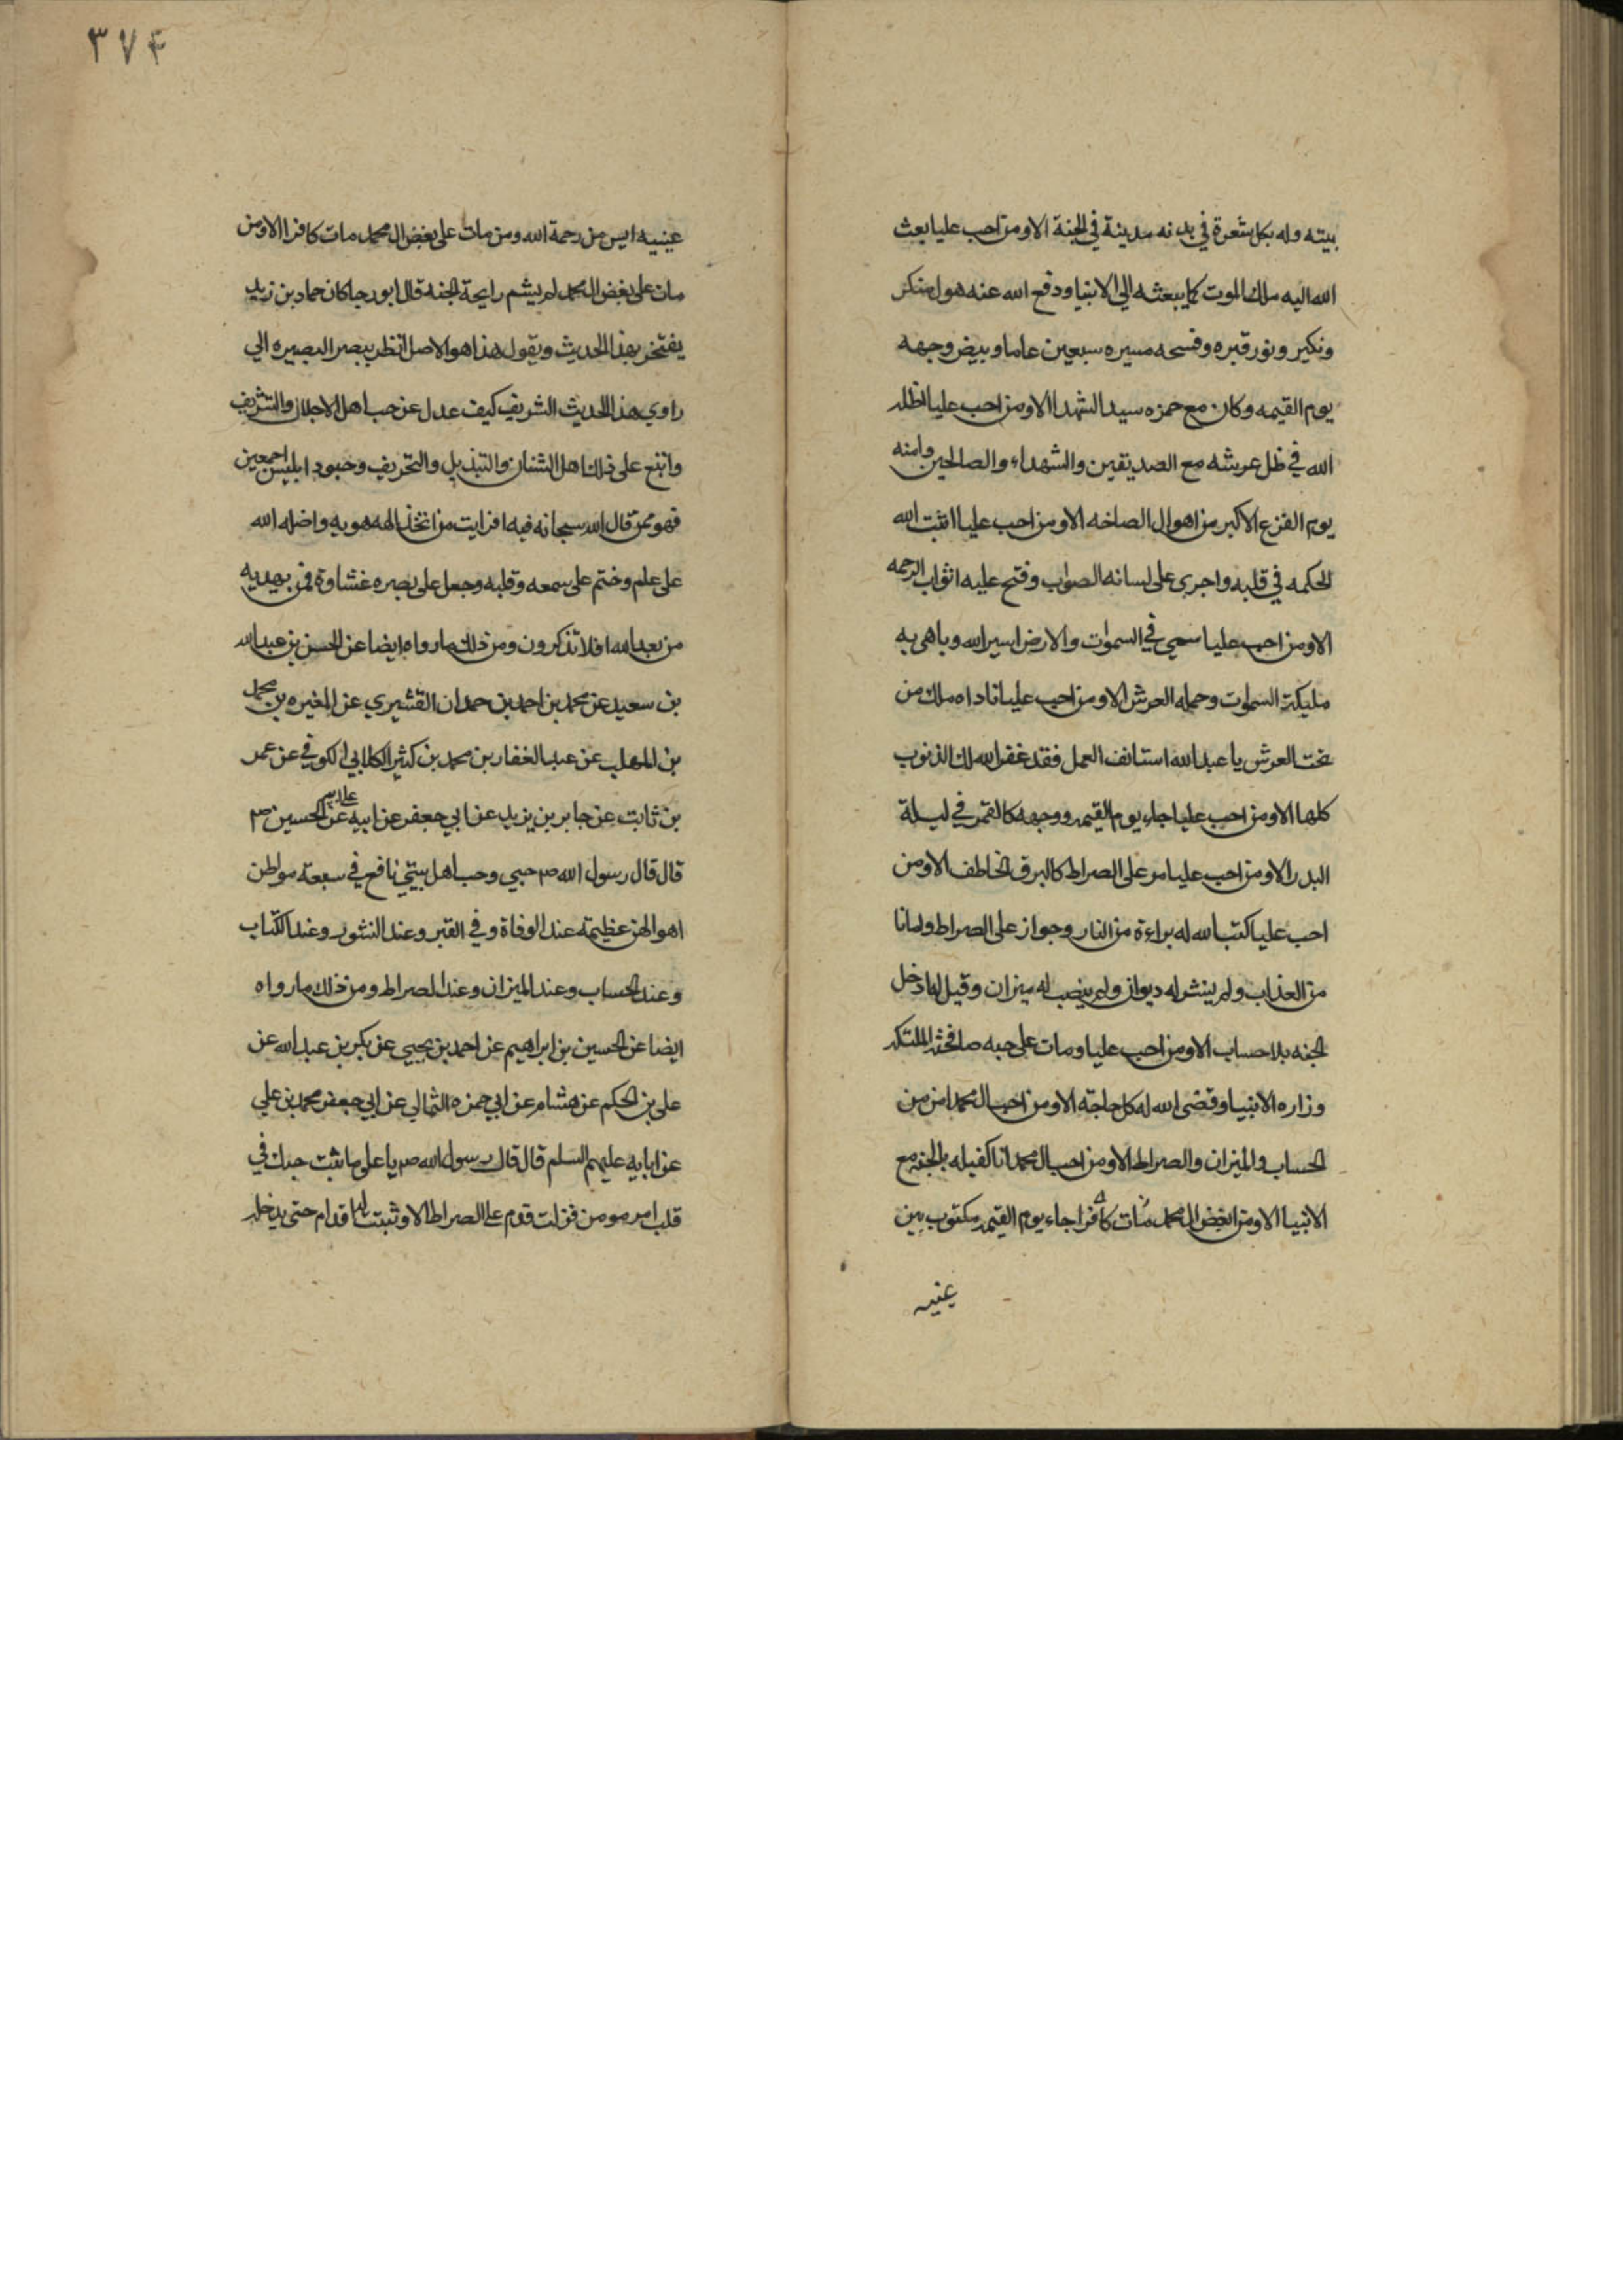 بيته وله بكل شعرة في بدنه مدينة في الجنة الا ومن احب عليا بعث
الله اليه ملك الموت كما يبعثه الى الانبيا ودفع الله عنه هول منكر
ونكير ونور قبره وفسحه مسيره سبعين عاما وبيض وجهه
يوم القيمه وكان مع حمزه سيد الشهدا الا ومن احب عليا اظله
الله في ظل عرشه مع الصديقين والشهداء والصالحين وامنه
يوم الفزع الاكبر من اهوال الصاخه الا ومن احب عليا اثبت الله
الحكمه في قلبه واجرى على لسانه الصواب وفتح عليه ابواب الرحمه
الا ومن احب عليا سمي في السموات والارض اسير الله وباهى به
مليكة السموات وحمله العرش الا ومن احب عليا ناداه ملك من
تحت العرش يا عبد الله استانف العمل فقد غفر الله لك الذنوب
كلها الا ومن احب عليا جاء يوم القيمه ووجهه كالقمر في ليلة
البدر الا ومن احب عليا مر على الصراط كالبرق الخاطف الا ومن
احب عليا كتب الله له براءة من النار وجواز على الصراط وامانا
من العذاب ولم ينشر له ديوان ولم ينصب له ميزان وقيل له ادخل
الجنه بلا حساب الا ومن احب عليا ومات على حبه صافحته الملئكه
وزاره الانبيا وقضى الله له كل حاجته الا ومن احب ال محمد امن من
الحساب والميزان والصراط الا ومن احب ال محمد انا كفيله بالجنه مع
الانبيا الا ومن ابغض ال محمد مات كافرا جاء يوم القيمه مكتوب بين
عينيه
٣٧٤
عينيه ايس من رحمة الله ومن مات على بغض ال محمد مات كافرا الا ومن
مات على بغض ال محمد لم يشم رايحة الجنه قال ابو رجا كان حماد بن زيد
يفتخر بهذا الحديث ويقول هذا هو الاصل انظر ببصر البصيره الي
راوي هذا الحديث الشريف كيف عدل عن حب اهل الاجلال والتشريف
واتبع على ذلك اهل الشنان والتبديل والتحريف وجنود ابليس اجمعين
فهو ممن قال الله سبحانه فيه افرايت من اتخذ الهه هويه واضله الله
على علم وختم على سمعه وقلبه وجعل على بصره غشاوة فمن يهديه
من بعد الله افلا تذكرون ومن ذلك ما رواه ايضا عن الحسن بن عبد الله
بن سعيد عن محمد بن احمد بن حمدان القشيري عن المغيره بن محمد
بن المهلب عن عبد الغفار بن محمد بن كثير الكلابي الكوفي عن عمر
بن ثابت عن جابر بن يزيد عن ابي جعفر عن ابيه عن الحسين ص
قال قال رسول الله ص حبي وحب اهل بيتي نافع في سبعة مواطن
اهوالهن عظيمه عند الوفاة وفي القبر وعند النشور وعند الكتاب
وعند الحساب وعند الميزان وعند الصراط ومن ذلك ما رواه
ايضا عن الحسين بن ابراهيم عن احمد بن يحيى عن بكر بن عبد الله عن
علي بن الحكم عن هشام عن ابي حمزه الثمالي عن ابي جعفر محمد بن علي
عن ابايه عليهم السلم قال قال رسول الله ص يا علي ما ثبت حبك في
قلب امر مومن فزلت قدم على الصراط الا وثبتت له اقدام حتى يدخله